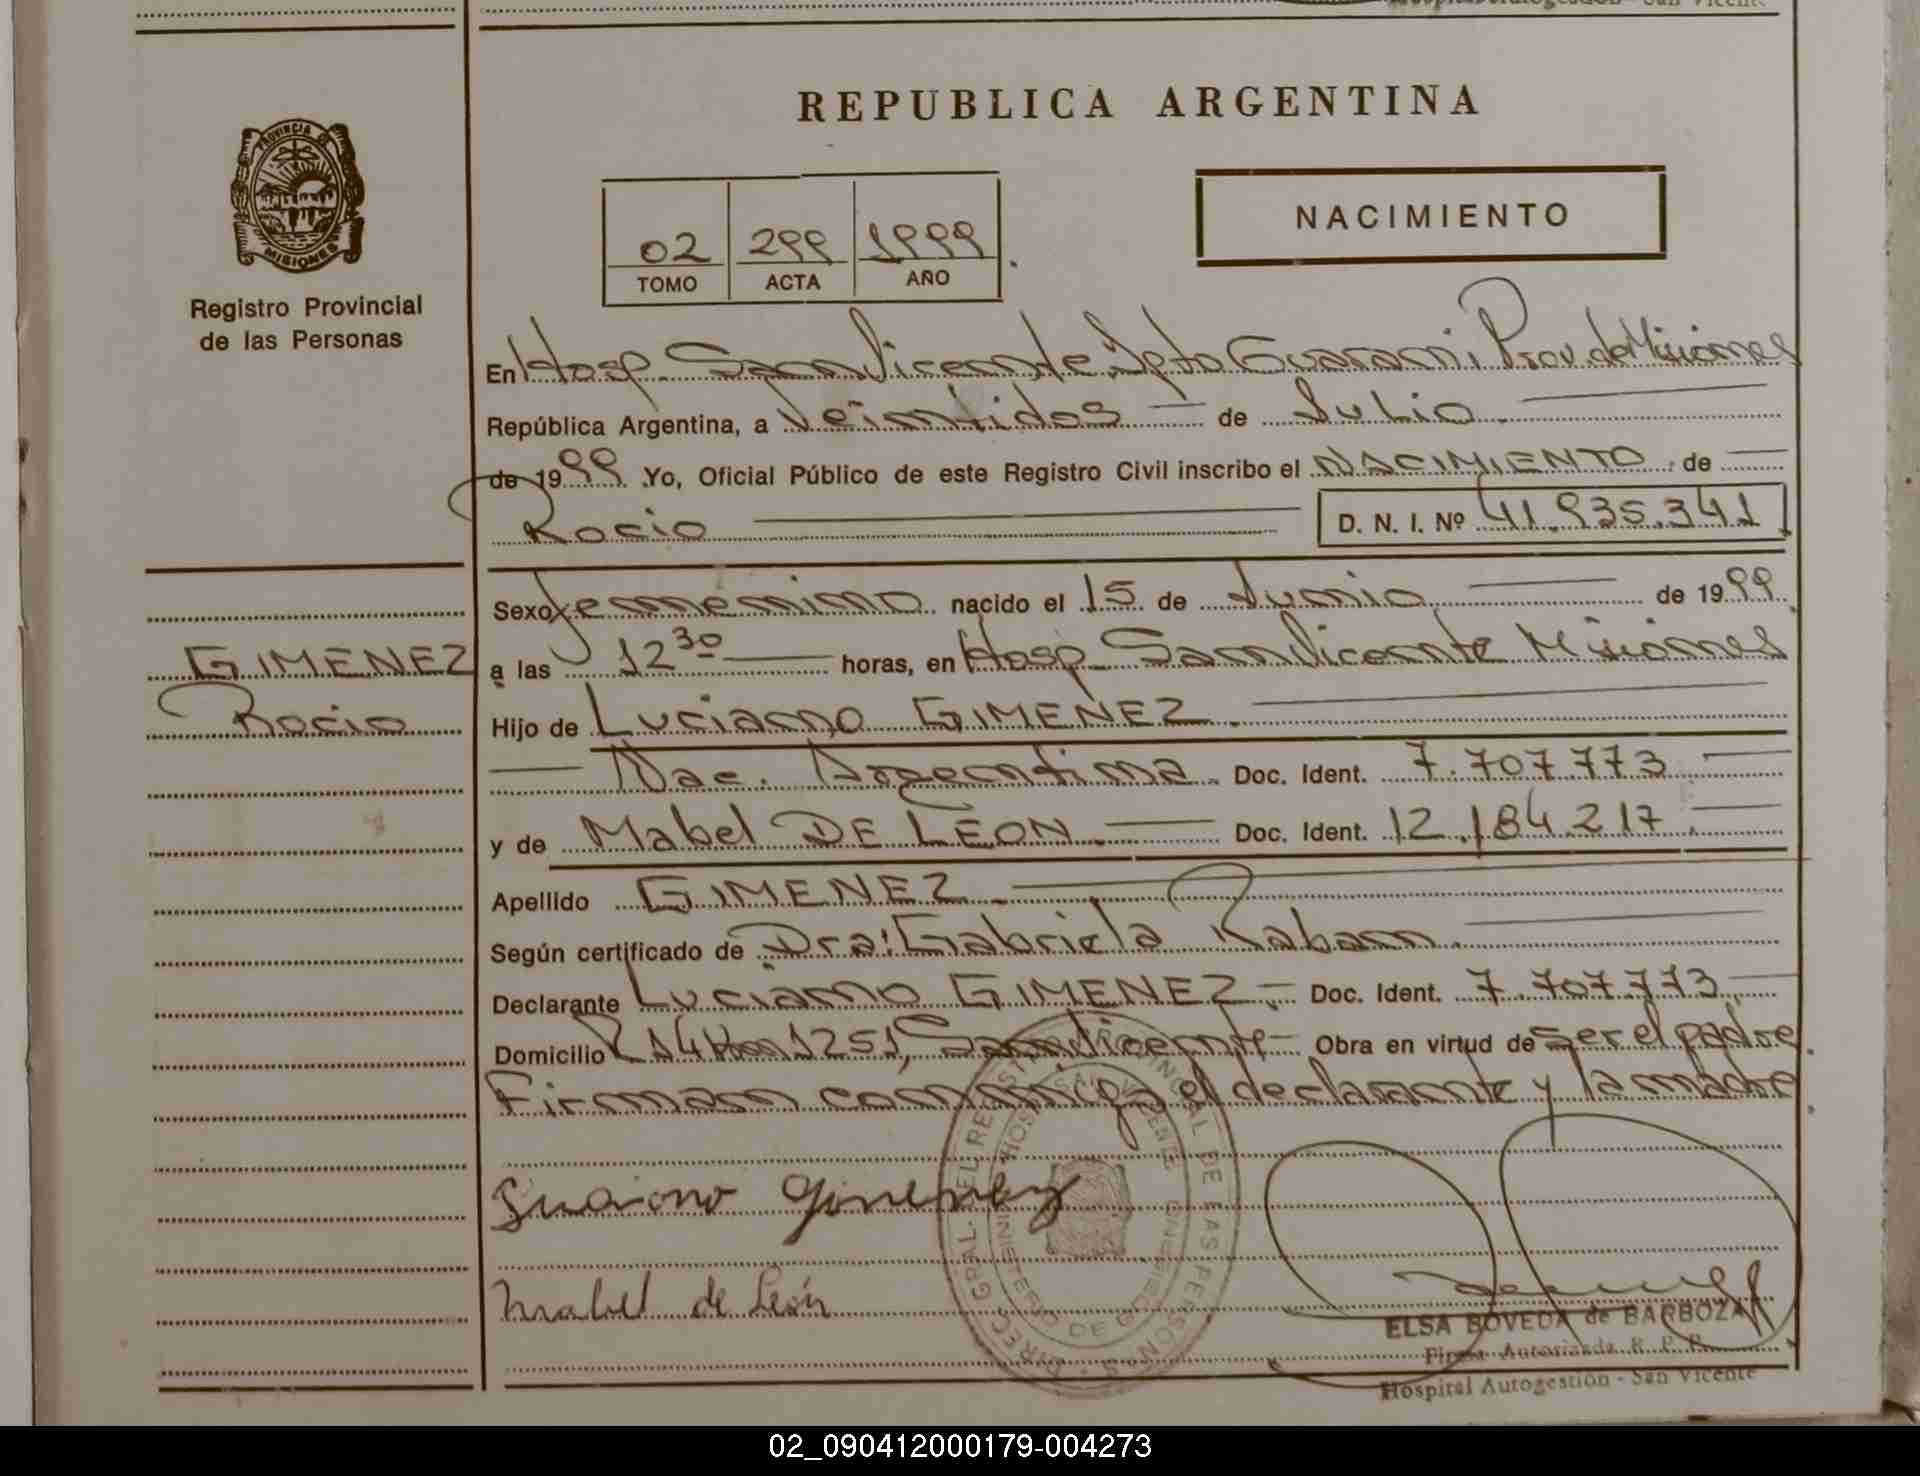 Hospital Autogestión - San Vicente
REPUBLICA ARGENTINA
PROVINCIA DE MISIONES
Registro Provincial
de las Personas
02 299 1999
TOMO ACTA AÑO
NACIMIENTO
En Hosp. San Vicente, Dpto Guarani, Prov. de Misiones
República Argentina, a Veintidos de Julio
de 1999 Yo, Oficial Público de este Registro Civil inscribo el NACIMIENTO de
Rocio D. N. I. Nº 41.935.341
GIMENEZ
Rocio
Sexo femenino nacido el 15 de Junio de 1999
a las 12 30 horas, en Hosp San Vicente Misiones
Hijo de Luciano GIMENEZ.
Nac. Argentina. Doc. Ident. 7.707.773
y de Mabel DE LEON. Doc. Ident. 12.184.217.
Apellido GIMENEZ.
Según certificado de Dra: Gabriela Raban.
Declarante Luciano GIMENEZ. Doc. Ident. 7.707.773
Domicilio R 14 Km 1251, San Vicente Obra en virtud de ser el padre.
Firman conmigo el declarante y la madre.
Luciano Gimenez
Mabel de León
DIREC. GRAL. DEL REGISTRO PROVINCIAL DE LAS PERSONAS
HOSP. SAN VICENTE
MINISTERIO DE GOBIERNO
ELSA BOVEDA de BARBOZA
Firma Autorizada R. P. P.
Hospital Autogestión - San Vicente
02_090412000179-004273